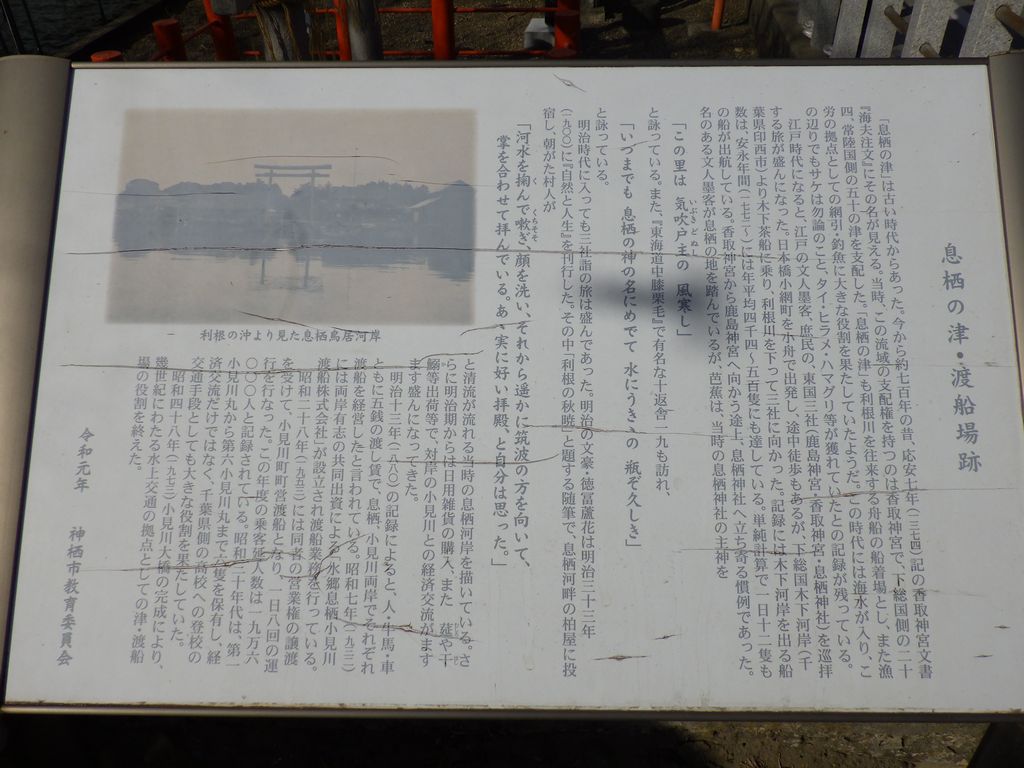 息栖の津・渡船場跡
「息栖の津」は古い時代からあった。今から約七百年の昔、応安七年(一三七四)記の香取神宮文書
『海夫注文』にその名が見える。当時、この流域の支配権を持つのは香取神宮で、下総国側の二十
四、常陸国側の五十の津を支配した。「息栖の津」も利根川を往来する舟船の船着場とし、また漁
労の拠点としての網引・釣魚に大きな役割を果たしていたようだ。この時代には海水が入り、こ
の辺りでもサケは勿論のこと、タイ・ヒラメ・ハマグリ・等が獲れていたとの記録が残っている。
江戸時代になると、江戸の文人墨客、庶民の、東国三社(鹿島神宮・香取神宮・息栖神社)を巡拝
する旅が盛んになった。日本橋小網町を小舟で出発し、途中徒歩もあるが、下総国木下河岸(千
葉県印西市)より木下茶船に乗り、利根川を下って三社に向かった。記録には木下河岸を出る船
数は、安永年間(一七七二〜)には年平均四千四〜五百隻にも達している。単純計算で一日十二隻も
の船が出航している。香取神宮から鹿島神宮へ向かう途上、息栖神社へ立ち寄る慣例であった。
名のある文人墨客が息栖の地を踏んでいるが、芭蕉は、当時の息栖神社の主神を
「この里は 気吹戸主の 風寒し」
いぶきどぬし
と詠っている。また、『東海道中膝栗毛』で有名な十返舎一九も訪れ、
「いつまでも 息栖の神の名にめでて 水にうきすの 瓶ぞ久しき」
と詠っている。
明治時代に入っても三社詣の旅は盛んであった。明治の文豪・徳冨蘆花は明治三十三年
(一九〇〇)に『自然と人生』を刊行した。その中「利根の秋暁」と題する随筆で、息栖河畔の柏屋に投
宿し、朝がた村人が
「河水を掬んで嗽ぎ、顔を洗い、それから遥かに筑波の方を向いて、
く くちそそ
掌を合わせて拝んでいる。あゝ実に好い拝殿、と自分は思った。」
利根の沖より見た息栖鳥居河岸
と清流が流れる当時の息栖河岸を描いている。さ
らに明治期からは日用雑貨の購入、また 莚や干
鰯等出荷等で、対岸の小見川との経済交流がます
ます盛んになってきた。
明治十三年(一八八〇)の記録によると、人・牛馬・車
ともに五銭の渡し賃で、息栖、小見川両岸でそれぞれ
渡船を経営したと言われている。昭和七年(一九三二)
には両岸有志の共同出資による「水郷息栖小見川
渡船株式会社」が設立され渡船業務を行っている。
昭和二十八年(一九五三)には同者の営業権の譲渡
を受けて、小見川町町営渡船となり、一日八回の運
行を行なった。この年度の乗客延人数は一九万六
〇〇〇人と記録されている。昭和三十年代は、第一
小見川丸から第六小見川丸まで六隻を保有し、経
済交流だけではなく、千葉県側の高校への登校の
交通手段としても大きな役割を果たしていた。
昭和四十八年(一九七三)小見川大橋の完成により、
幾世紀にわたる水上交通の拠点としての津・渡船
場の役割を終えた。
令和元年 神栖市教育委員会